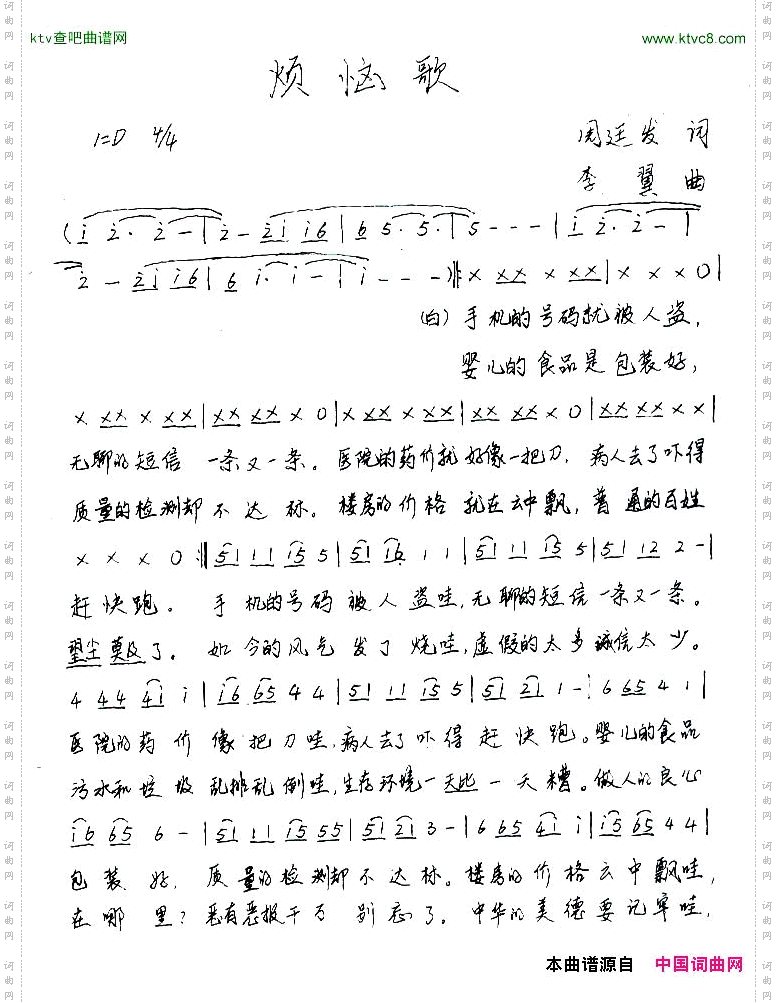 ktv查吧曲谱网 www.ktvc8.com
烦恼歌
1=D 4/4 周廷发 词
李翼 曲
(i 2· 2 - | 2 - 2i i6 | 6 5· 5· | 5 - - - | i 2· 2 - |
2 - 2i i6 | 6 i· i - | i - - - ):‖: x xx x xx | x x x 0 |
(白) 手机的号码就被人盗,
婴儿的食品是包装好,
x xx x xx | xx xx x 0 | x xx x xx | xx xx x 0 | xx xx x x |
无聊的短信 一条又一条。医院的药价就好像一把刀, 病人去了吓得
质量的检测却不达标。楼房的价格就在云中飘, 普通的百姓
x x x 0 :‖ 51 11 i5 5 | 51 16 1 1 | 51 11 i5 5 | 51 12 2 - |
赶快跑。 手机的号码被人盗哇, 无聊的短信一条又一条。
望尘莫及了。 如今的风气发了烧哇, 虚假的太多诚信太少。
4 44 4i i | i6 65 4 4 | 51 11 i5 5 | 51 21 1 - | 6 665 4 1 |
医院的药价像把刀哇, 病人去了吓得赶快跑。婴儿的食品
污水和垃圾乱排乱倒哇, 生存环境一天比一天糟。做人的良心
i6 65 6 - | 51 11 i5 55 | 51 21 3 - | 6 665 4i i | i5 65 4 4 |
包装好, 质量的检测却不达标。楼房的价格云中飘哇,
在哪里? 恶有恶报千万别忘了。中华的美德要记牢哇,
本曲谱源自 中国词曲网
词曲网